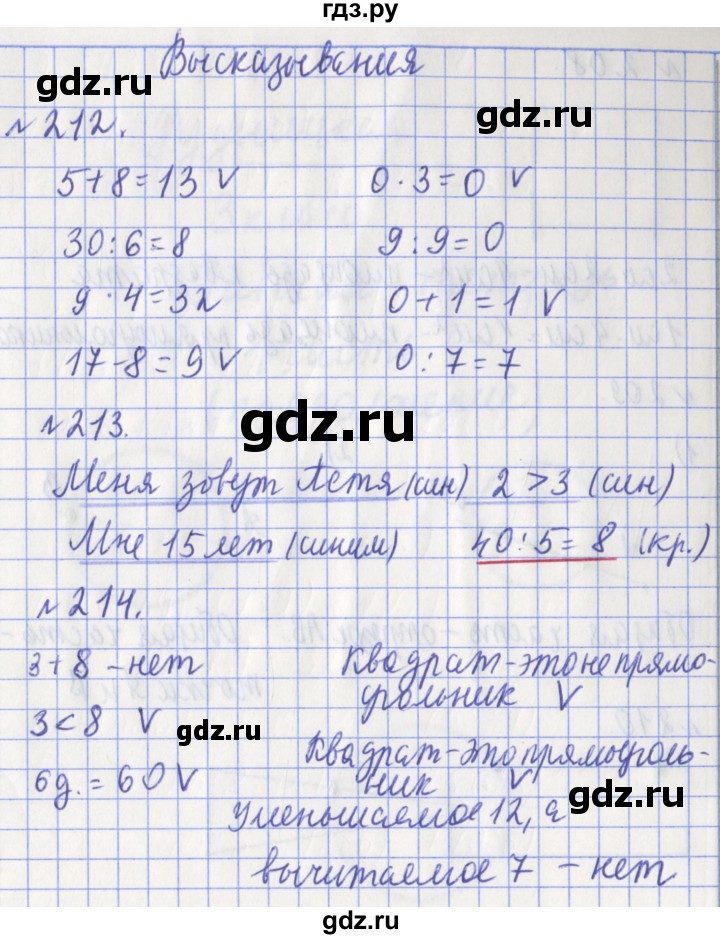 гдз.ру
Высказывания
gdz.ru
gdz.ru
№ 212.
5+8=13 V 0·3=0 V
30:6=8 9:9=0
9·4=32 0+1=1 V
17-8=9 V 0:7=7
gdz.ru
№ 213.
Меня зовут Петя (син) 2 > 3 (син)
Мне 15 лет (синим) 40:5=8 (кр.)
№ 214.
3+8 – нет Квадрат – это не прямо-
угольник V
3<8 V
gdz.ru
Квадрат – это прямоуголь-
6д. = 60 V ник V
gdz.ru
Уменьшаемое 12, а
вычитаемое 7 – нет
gdz.ru